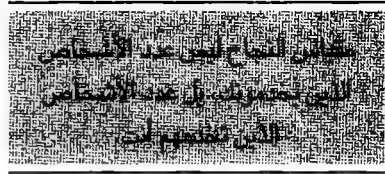 مقياس النجاح ليس عدد الأشخاص
الذين يخدمونك، بل عدد الأشخاص
الذين تخدمهم أنت